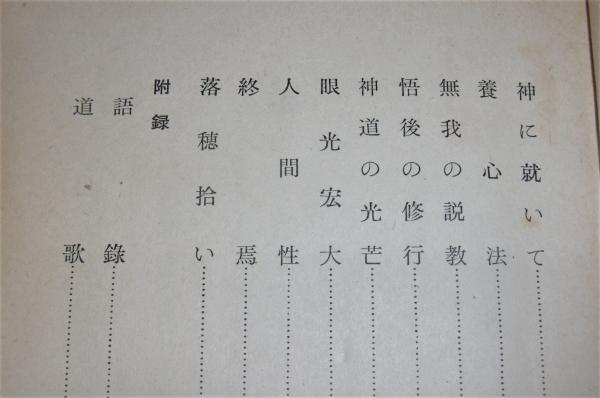 神に就いて
養心法
無我の説教
悟後の修行
神道の光芒
眼光宏大
人間性
終焉
落穂拾い
附録
語錄
道歌